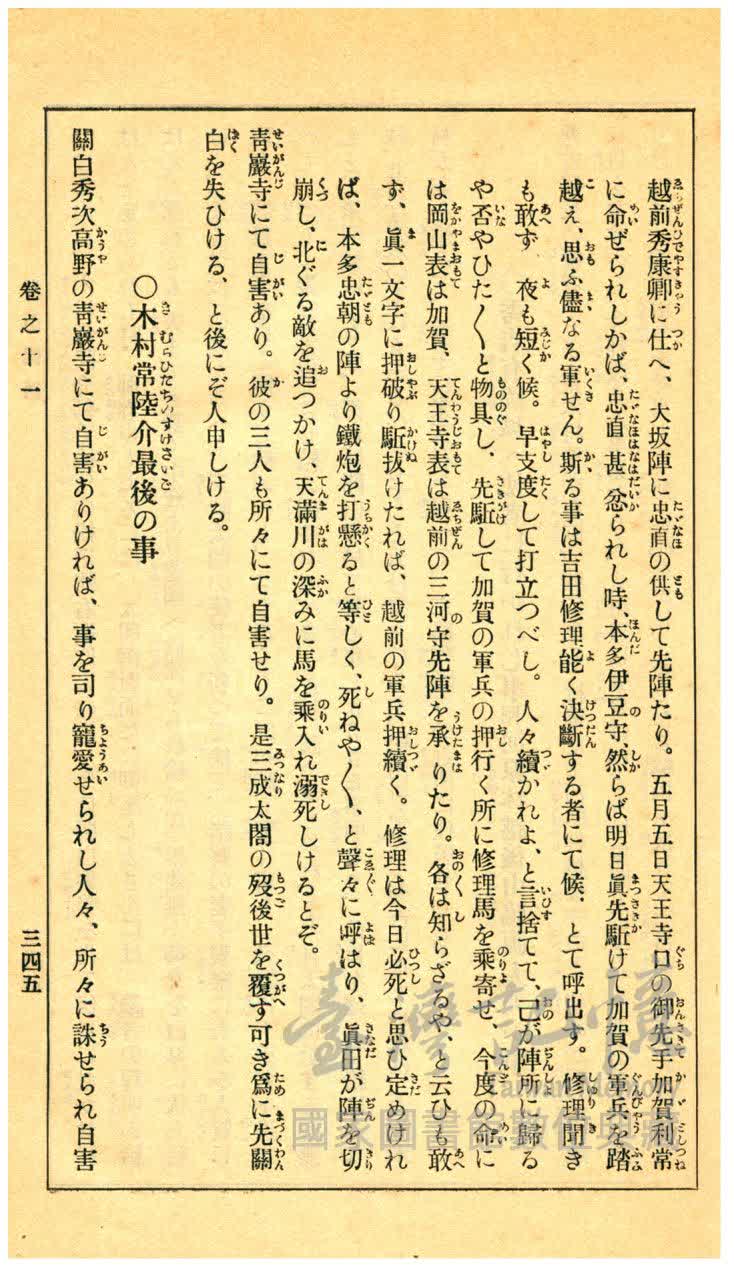 越前秀康卿に仕へ、大坂陣に忠直の供して先陣たり。五月五日天王寺口の御先手加賀利常
に命ぜられしかば、忠直甚忿られし時、本多伊豆守、然らば明日眞先駈けて加賀の軍兵を踏
越え、思ふ儘なる軍せん。斯る事は吉田修理能く決斷する者にて候、とて呼出す。修理聞き
も敢ず、夜も短く候。早支度して打立つべし。人々續かれよ、と言捨てて、己が陣所に歸る
や否やひた〳〵と物具し、先駈して加賀の軍兵の押行く所に修理馬を乘寄せ、今度の命に
は岡山表は加賀、天王寺表は越前の三河守先陣を承りたり。各は知らざるや、と云ひも敢
ず、眞一文字に押破り駈拔けたれば、越前の軍兵押續く。修理は今日必死と思ひ定めけれ
ば、本多忠朝の陣より鐵炮を打懸ると等しく、死ねや〳〵、と聲々に呼はり、眞田が陣を切
崩し、北ぐる敵を追つかけ、天滿川の深みに馬を乘入れ溺死しけるとぞ。
靑巖寺にて自害あり。彼の三人も所々にて自害せり。是三成太閤の歿後世を覆す可き爲に先關
白を失ひける、と後にぞ人申しける。
〇木村常陸介最後の事
關白秀次高野の靑巖寺にて自害ありければ、事を司り寵愛せられし人々、所々に誅せられ自害
卷之十一
三四五
臺灣記憶
國家圖書館數位典藏